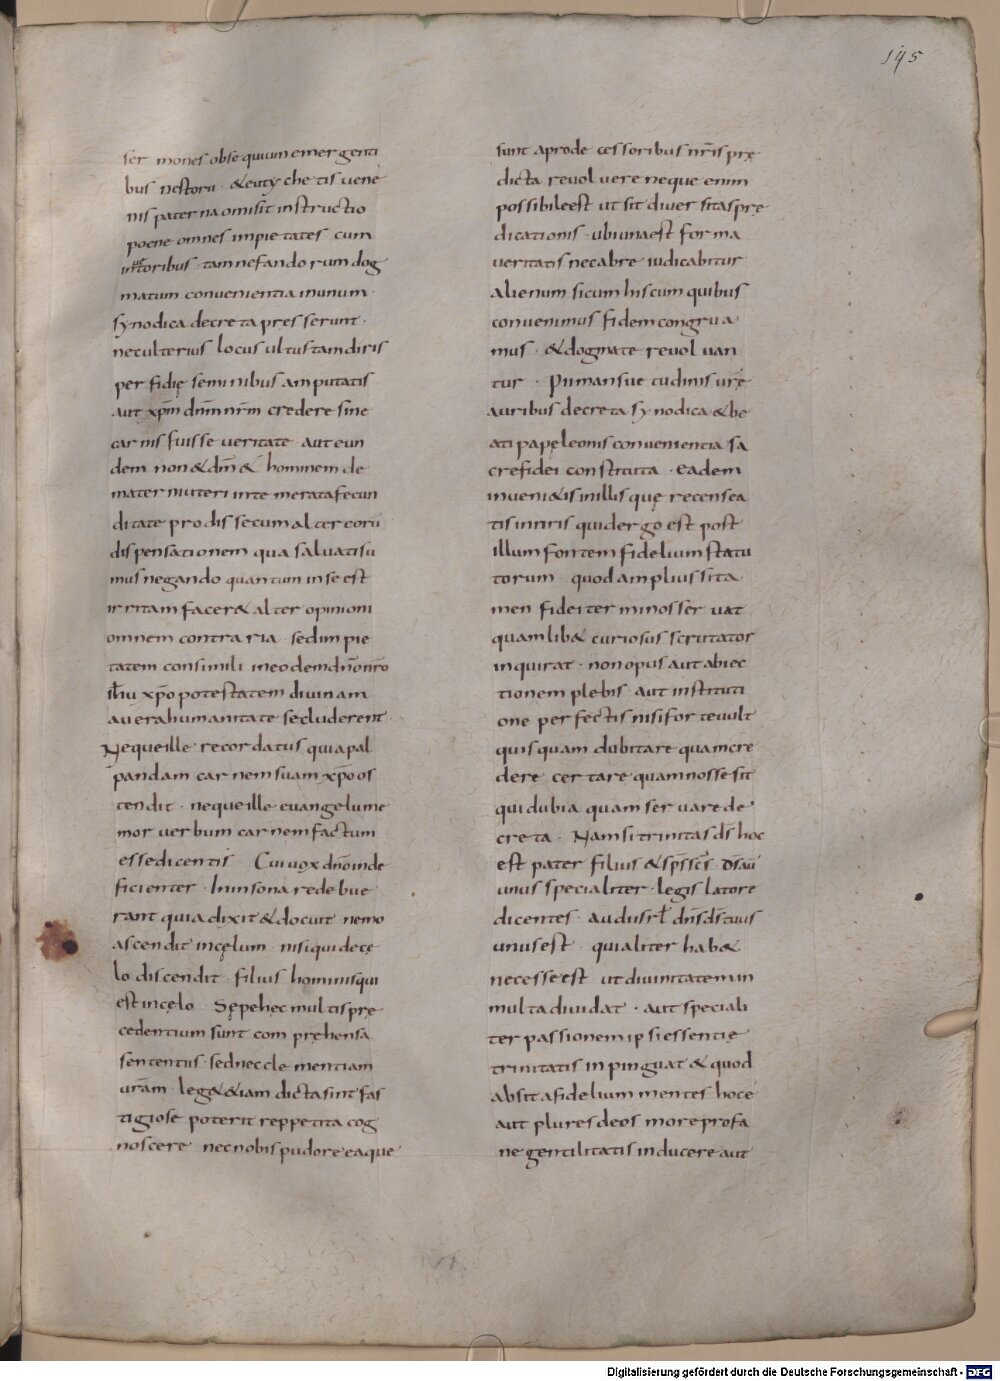 145
ser mones obse quium emer genti
bus nestorii · &euty che tis uene
nis pater na omisit instructio
poene omnes impie tates cum
toribus · tam nefando rum dog
matum conuenientia inunum ·
synodica decre ta pres serunt ·
neculterius locus ultus tam diris
per fidię semi nibus am putatis
aut xp̄m dn̄m nr̄m credere sine
car nis fuisse ueritate · aut eun
dem non &dm̄ & hominem de
mater ni uteri inte merata fecun
di tate pro dis se cum al ter eorū
dispensationem qua saluatisu
mus negando quantum inse est
irritam facer& al ter opinioni
omnem contraria · sedim pie
tatem consimili ineodem dn̄o nr̄o
ih̄u xp̄o potestatem diuinam
auera humanitate secluderent ·
Neque ille recordatus quia pal
pandam car nem suam xp̄o os
tendit · neque ille euangelume
mor uer bum car nem factum
esse dicentis · Cui uox dn̄o inde
ficienter · In in sona rede bue
rant quia dixit & docuit nemo
ascendit incęlum · nisi qui decę
lo discendit · filius hominis qui
est incęlo · Sępe hęc multis prę
cedentium sunt com prehensa
sententiis · sed nec cle mentiam
ur̄am · leg& &iam dicta sint fas
tigiose poterit reppetita cog
noscere nec nobis pudore eaque
sunt aprode ces soribus nr̄is prę
dicta reuol uere neque enim
possibile est ut sit diuer sitas prę
dicationis · ubi una est for ma
ueritatis nec abre iudicabitur
alienum sicum his cum quibus
conuenimus fidem congrua
mus · & dogmate reuol uan
tur · Piimansue tudinis ur̄ę
auribus decreta synodica & be
ati papę leonis conuenientia sa
crę fidei constituta · eadem
inueni&is in illis quę recensea
tis innr̄is quid ergo est post
illum fontem fidelium statu
torum quod am plius sita
men fidei ter minos ser uat
quam lib& curiosus scrutator
inquirat · non opus aut abiec
tionem plebis · aut instituti
one per fectis nisi for te uult
quisquam dubitare quam cre
dere cer tare quam nosse sit
qui dubia quam ser uare de
creta · Nam si trinitas ds̄ hoc
est pater filius & sp̄s sc̄s · ds̄ aū
unus specialiter · legis latore
dicentes · audi isrl̄ dn̄s ds̄ tuus
unus est · qui aliter hab&
necesse est ut diuinitatem in
multa diuidat · aut speciali
ter passionem ipsi essentię
trinitatis inpinguat & quod
absit afidelium mentes hoc e
aut plures deos more profa
ne gentilitatis inducere aut
Digitalisierung gefördert durch die Deutsche Forschungsgemeinschaft · DFG